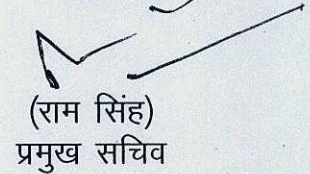 (राम सिंह)
प्रमुख सचिव